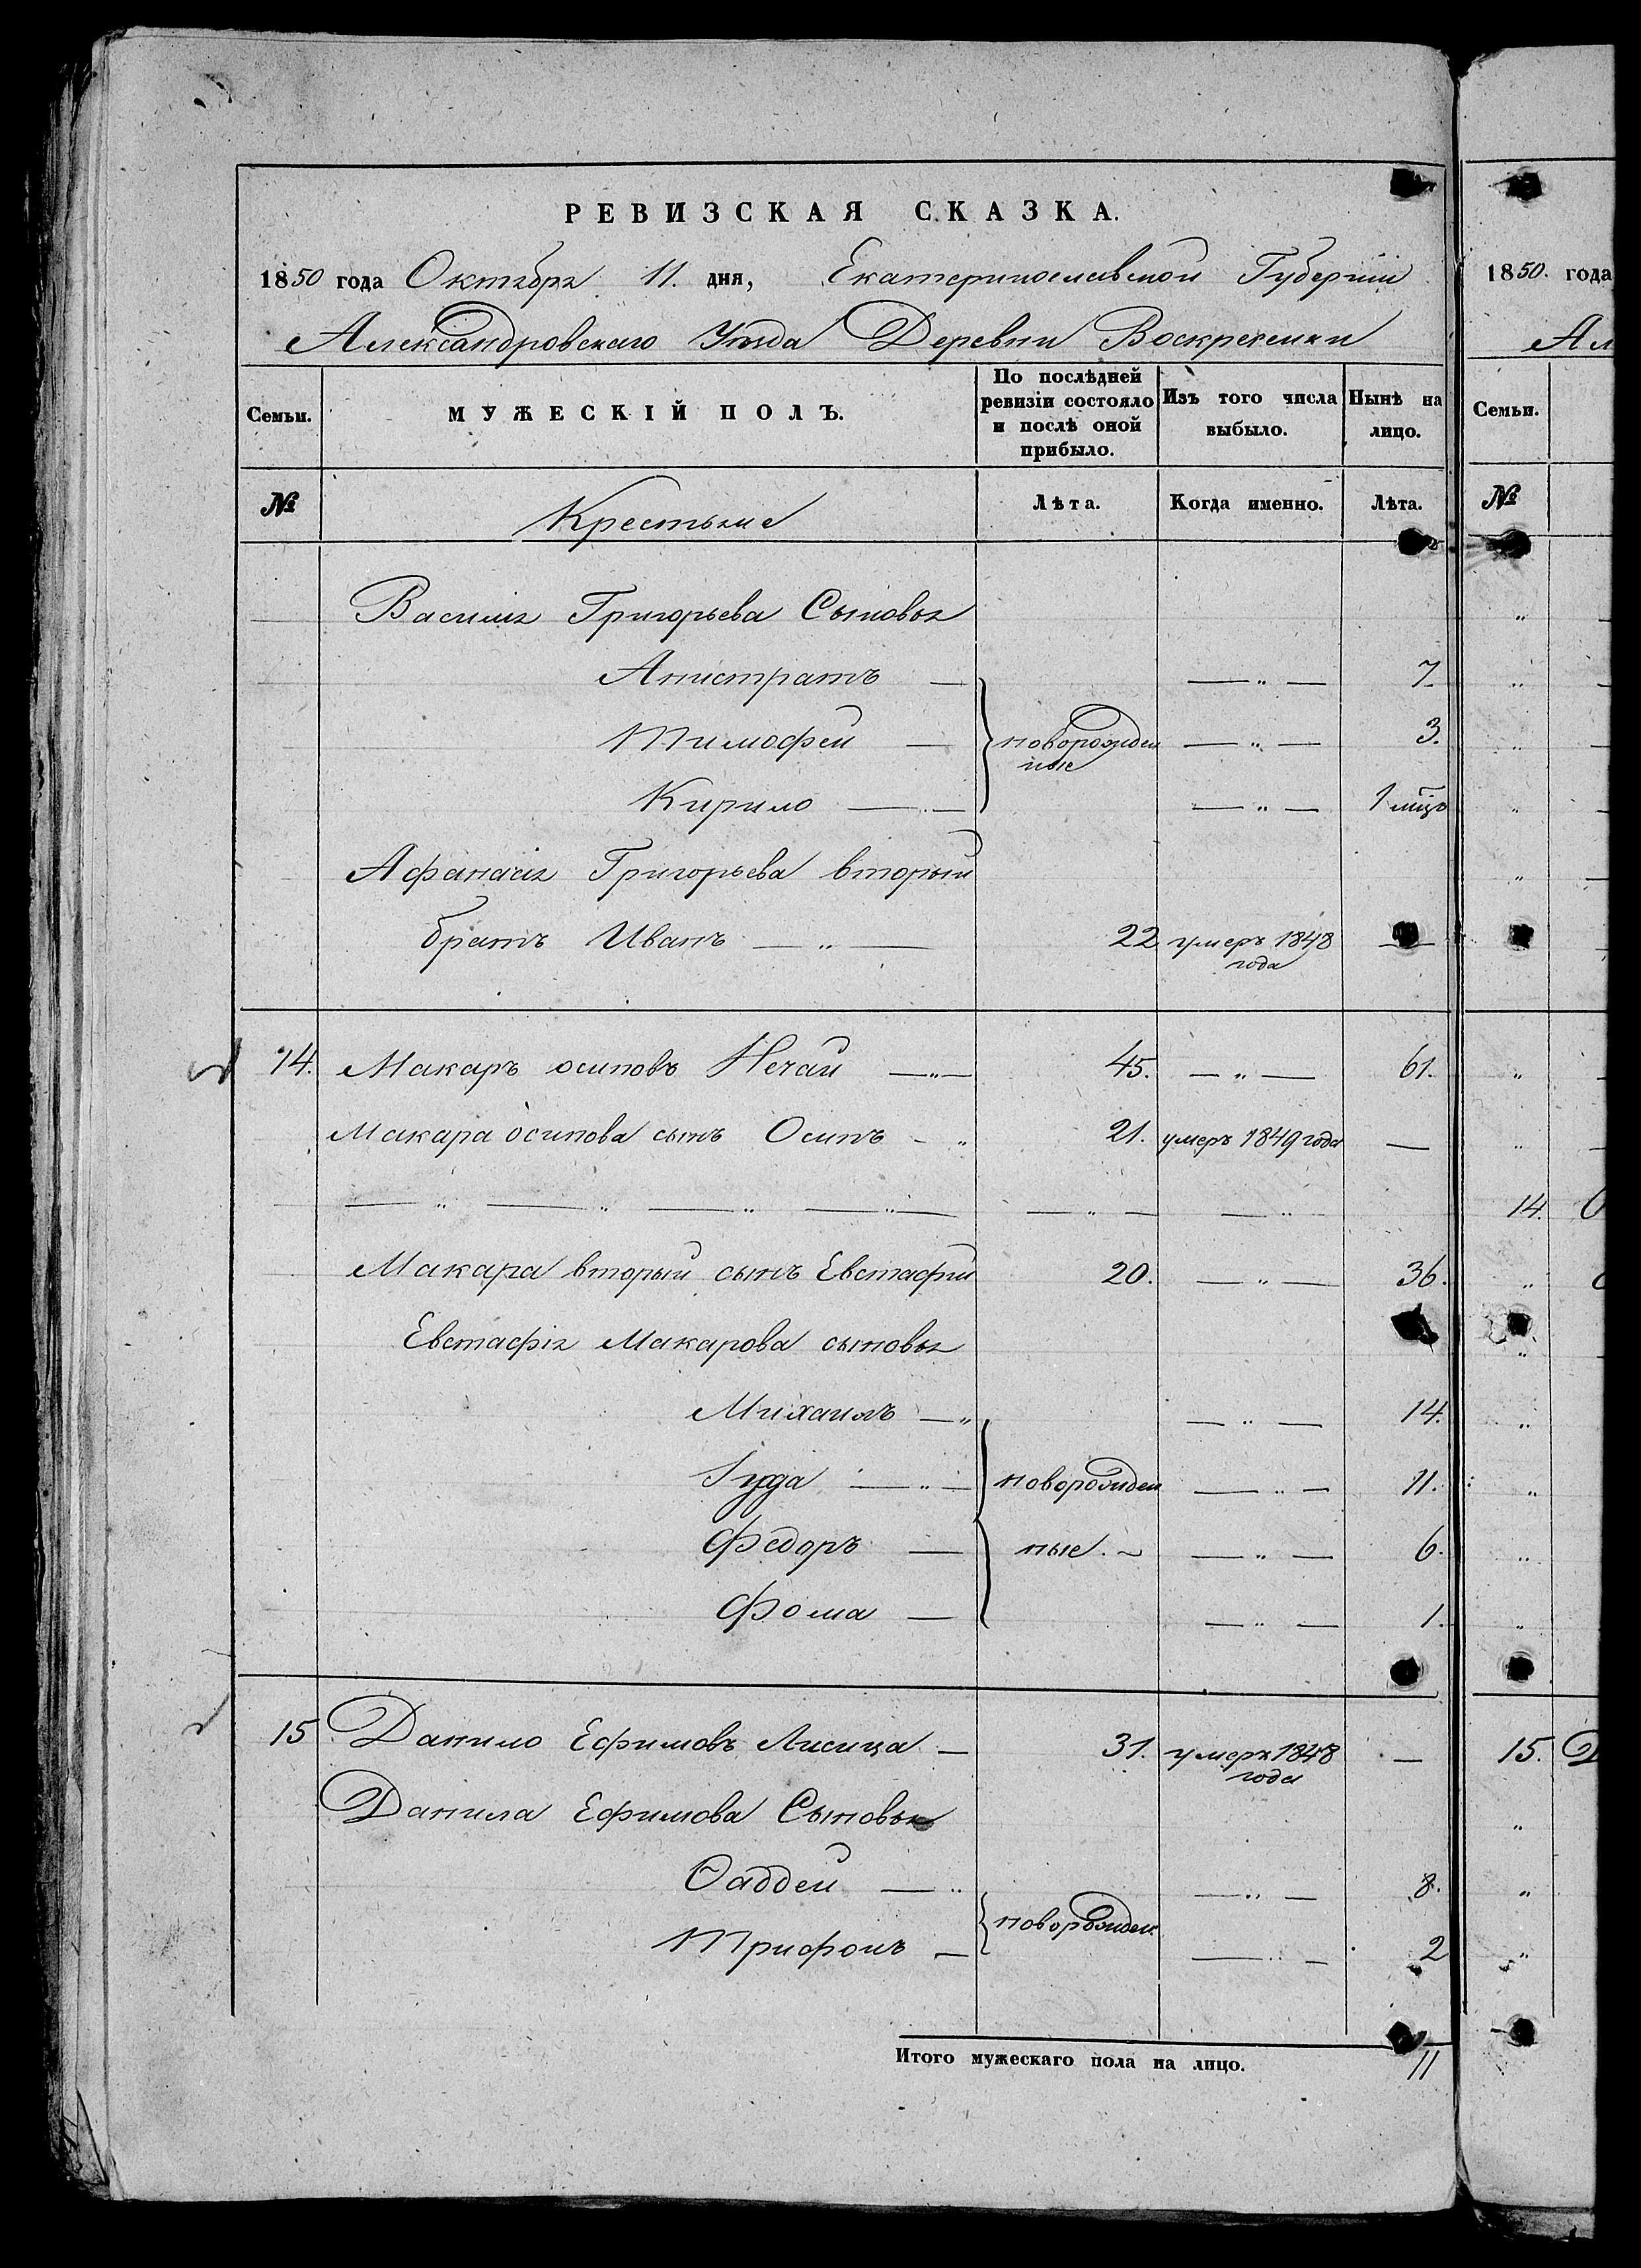 РЕВИЗСКАЯ СКАЗКА.
1850 года Октября 11. дня, Екатеринославской Губерніи
Александровскаго Уѣзда Деревни Воскресенки
Семьи.
МУЖЕСКІЙ ПОЛЪ.
По послѣдней ревизіи состояло и послѣ оной прибыло.
Изъ того числа выбыло.
Нынѣ на лицо.
№ Крестьяне Лѣта. Когда именно. Лѣта.
Василія Григорьева Сыновья
Анистратъ — — „ — 7.
Тимофей — новорожден — „ — 3.
ные
Кирило — — „ — 1 мѣцъ
Афанасія Григорьева вторый
братъ Иванъ — „ — 22 умеръ 1848 —
года
14. Макаръ осиповъ Нечай — „ — 45. — „ — 61.
Макара осипова сынъ Осипъ - „ 21. умеръ 1849 года —
— „ — „ — „ — „ — — „ — — „
Макара вторый сынъ Евстафій 20. — „ — 36.
Евстафія Макарова сыновья
Михаилъ — „ — „ — 14.
Іуда — „ — новорожден — „ — 11.
Федоръ — ные. ~ — „ — 6.
Фома — — „ — 1.
15 Данило Ефимовъ Лисица — 31. умеръ 1848 —
года
Данила Ефимова Сыновья
Ѳаддей — „ — „ — 8.
новорожден.
Трифонъ — — „ — 2
Итого мужескаго пола на лицо. 11
1850. года
Ал
Семьи.
№
14.
15. Д